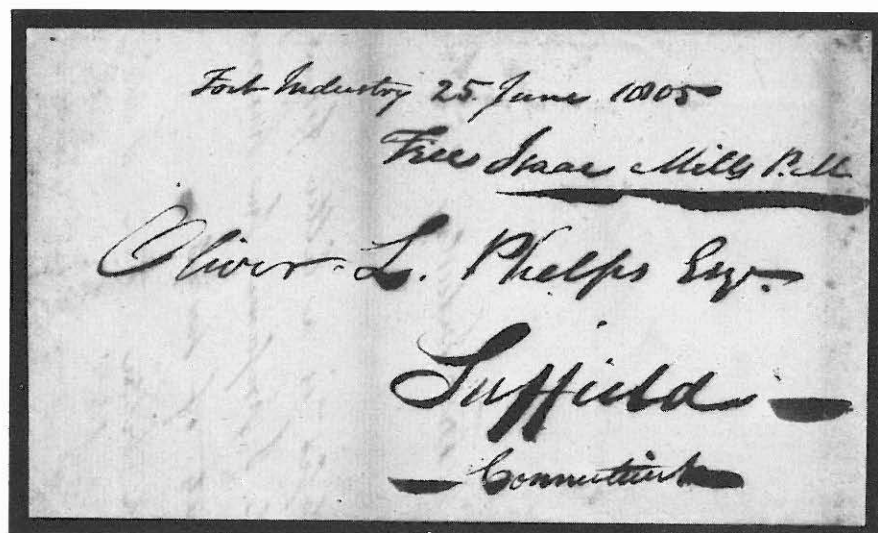 Fort Industry 25 June 1805
Free Isaac Mills P.M.
Oliver L. Phelps Esqr.
Suffield
Connecticut